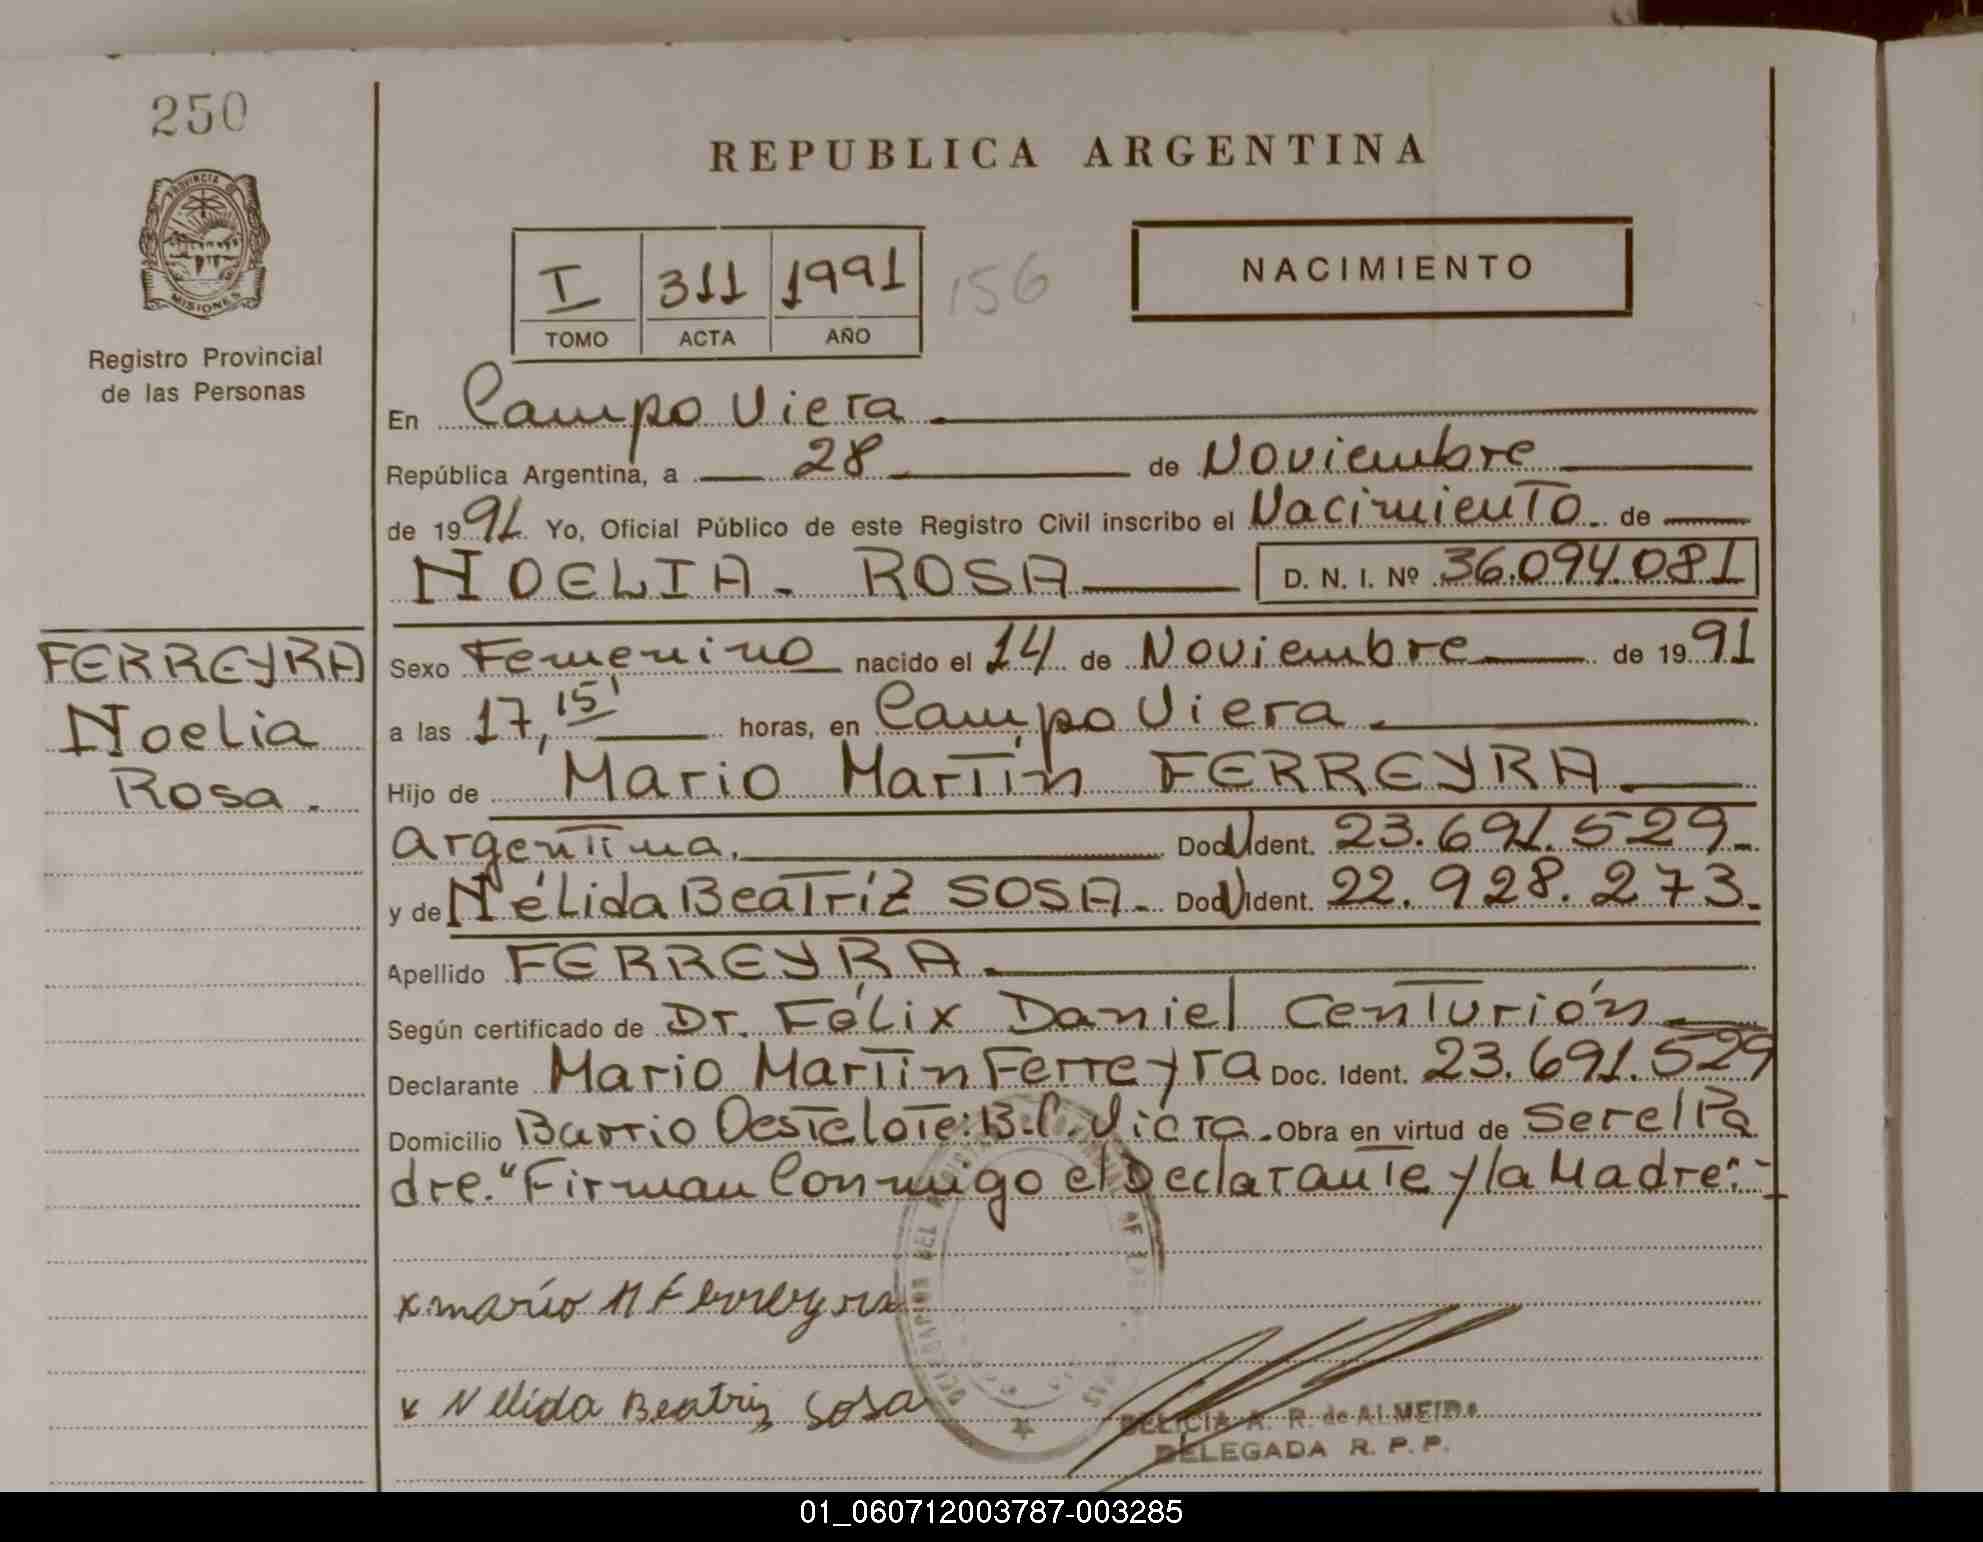 250
PROVINCIA DE
MISIONES
Registro Provincial
de las Personas
REPUBLICA ARGENTINA
I 311 1991 156
TOMO ACTA AÑO
NACIMIENTO
En Campo Viera
República Argentina, a 28 de Noviembre
de 1991 Yo, Oficial Público de este Registro Civil inscribo el Nacimiento de
NOELIA - ROSA D. N. I. Nº 36.094.081
FERREYRA
Noelia
Rosa.
Sexo Femenino nacido el 14 de Noviembre de 1991
a las 17, 15' horas, en Campo Viera
Hijo de Mario Martín FERREYRA
Argentina. Doc. U Ident. 23.691.529-
y de Nélida Beatríz SOSA - Doc. U Ident. 22.928.273-
Apellido FERREYRA
Según certificado de Dr. Félix Daniel Centurión
Declarante Mario Martin Ferreyra Doc. Ident. 23.691.529
Domicilio Barrio Oeste Lote: B. C. Viera. Obra en virtud de Ser el Pa
dre. "Firman Conmigo el Declarante y la Madre:-
x mario M Ferreyra
x Nelida Beatriz Sosa
DELICIA A. R. de ALMEIDA
DELEGADA R. P. P.
01_060712003787-003285